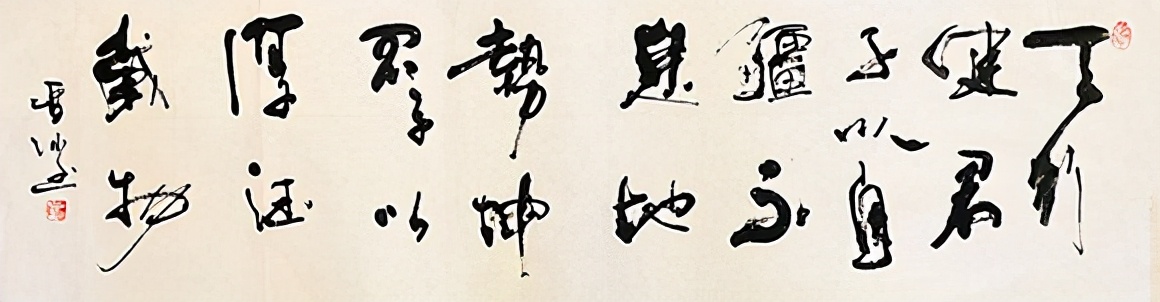 天行
健君
子以自
彊不
息地
勢坤
君子以
厚德
載物